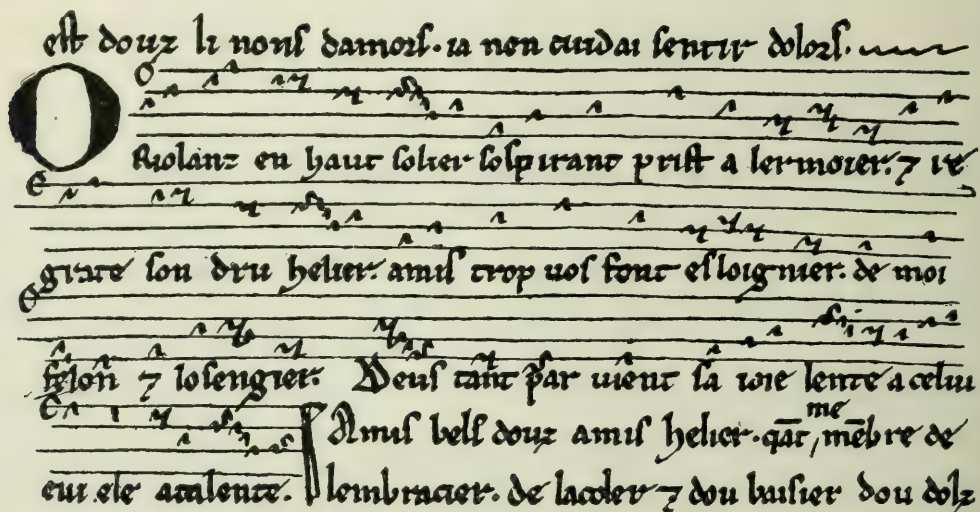 est douz li nons damors. ia nen cuidai sentir dolors.
O Riolanz en haut solier sospirant prist a lermoier. ⁊ re
grate son dru helier. amis trop uos font esloignier. de moi
felon ⁊ losengier. Deus tāt p̄ar uient sa ioie lente a celui
cui ele atalente. Amis bels douz amis helier. qāt me mēbre de
lembracier. de lacoler ⁊ dou baisier dou dolz